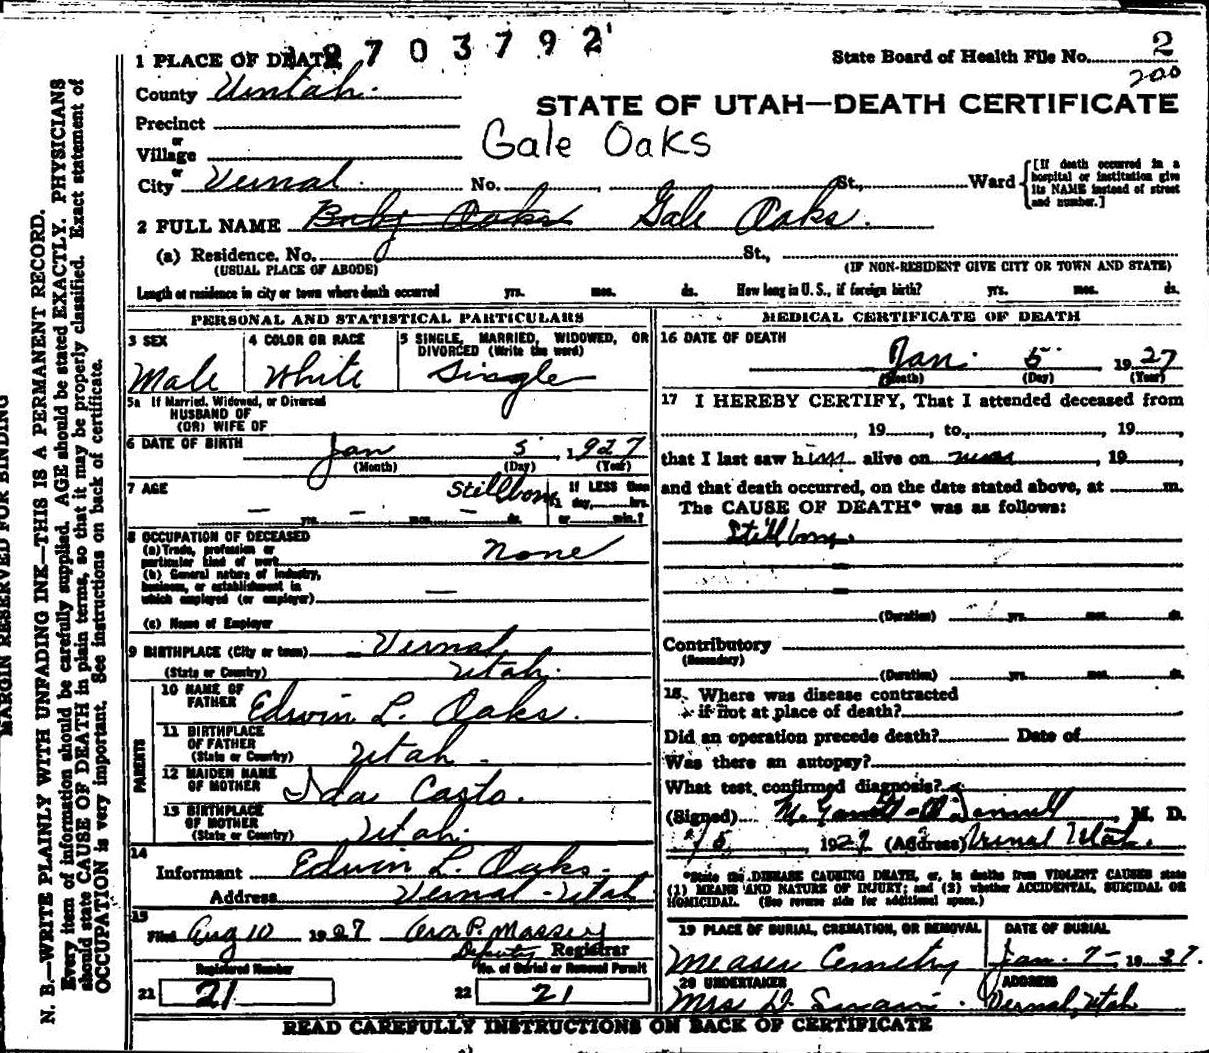 2703792
1 PLACE OF DEATH
State Board of Health File No. 2
200
County Uintah.
STATE OF UTAH—DEATH CERTIFICATE
Precinct
or
Village
Gale Oaks
or
City Vernal. No. , St., Ward
[If death occurred in a hospital or institution give its NAME instead of street and number.]
2 FULL NAME Baby Oaks Gale Oaks.
(a) Residence. No. St.,
(USUAL PLACE OF ABODE) (IF NON-RESIDENT GIVE CITY OR TOWN AND STATE)
Length of residence in city or town where death occurred yrs. mos. ds. How long in U. S., if foreign birth? yrs. mos. ds.
PERSONAL AND STATISTICAL PARTICULARS
3 SEX 4 COLOR OR RACE 5 SINGLE, MARRIED, WIDOWED, OR
DIVORCED (Write the word)
Male White Single
5a If Married, Widowed, or Divorced
HUSBAND OF
(OR) WIFE OF
6 DATE OF BIRTH Jan 5 1927
(Month) (Day) (Year)
7 AGE Stillborn If LESS than
1 day, hrs.
yrs. mos. ds. or min.?
8 OCCUPATION OF DECEASED
(a) Trade, profession or
particular kind of work None
(b) General nature of industry,
business, or establishment in
which employed (or employer)
(c) Name of Employer
9 BIRTHPLACE (City or town) Vernal
(State or Country) Utah.
PARENTS
10 NAME OF
FATHER Edwin L. Oaks.
11 BIRTHPLACE
OF FATHER
(State or Country) Utah.
12 MAIDEN NAME
OF MOTHER Ida Casto.
13 BIRTHPLACE
OF MOTHER
(State or Country) Utah.
14
Informant Edwin L. Oaks.
Address Vernal - Utah
15
Filed Aug 10 1927
Deputy Registrar
Registered Number No. of Burial or Removal Permit
21 21 22 21
MEDICAL CERTIFICATE OF DEATH
16 DATE OF DEATH
Jan. 5 1927
(Month) (Day) (Year)
17 I HEREBY CERTIFY, That I attended deceased from
, 19 , to , 19 ,
that I last saw him alive on , 19 ,
and that death occurred, on the date stated above, at m.
The CAUSE OF DEATH* was as follows:
Stillborn.
(Duration) yrs. mos. ds.
Contributory
(Secondary)
(Duration) yrs. mos. ds.
18. Where was disease contracted
if not at place of death?
Did an operation precede death? Date of
Was there an autopsy?
What test confirmed diagnosis?
(Signed) M. D.
1/5 1927 (Address) Vernal Utah.
*State the DISEASE CAUSING DEATH, or, in deaths from VIOLENT CAUSES state
(1) MEANS AND NATURE OF INJURY; and (2) whether ACCIDENTAL, SUICIDAL OR
HOMICIDAL. (See reverse side for additional space.)
19 PLACE OF BURIAL, CREMATION, OR REMOVAL DATE OF BURIAL
Cemetry Jan. 7- 1927.
20 UNDERTAKER ADDRESS
Mrs D. Vernal, Utah
READ CAREFULLY INSTRUCTIONS ON BACK OF CERTIFICATE
MARGIN RESERVED FOR BINDING
N. B.—WRITE PLAINLY WITH UNFADING INK—THIS IS A PERMANENT RECORD.
Every item of information should be carefully supplied. AGE should be stated EXACTLY. PHYSICIANS
should state CAUSE OF DEATH in plain terms, so that it may be properly classified. Exact statement of
OCCUPATION is very important. See instructions on back of certificate.